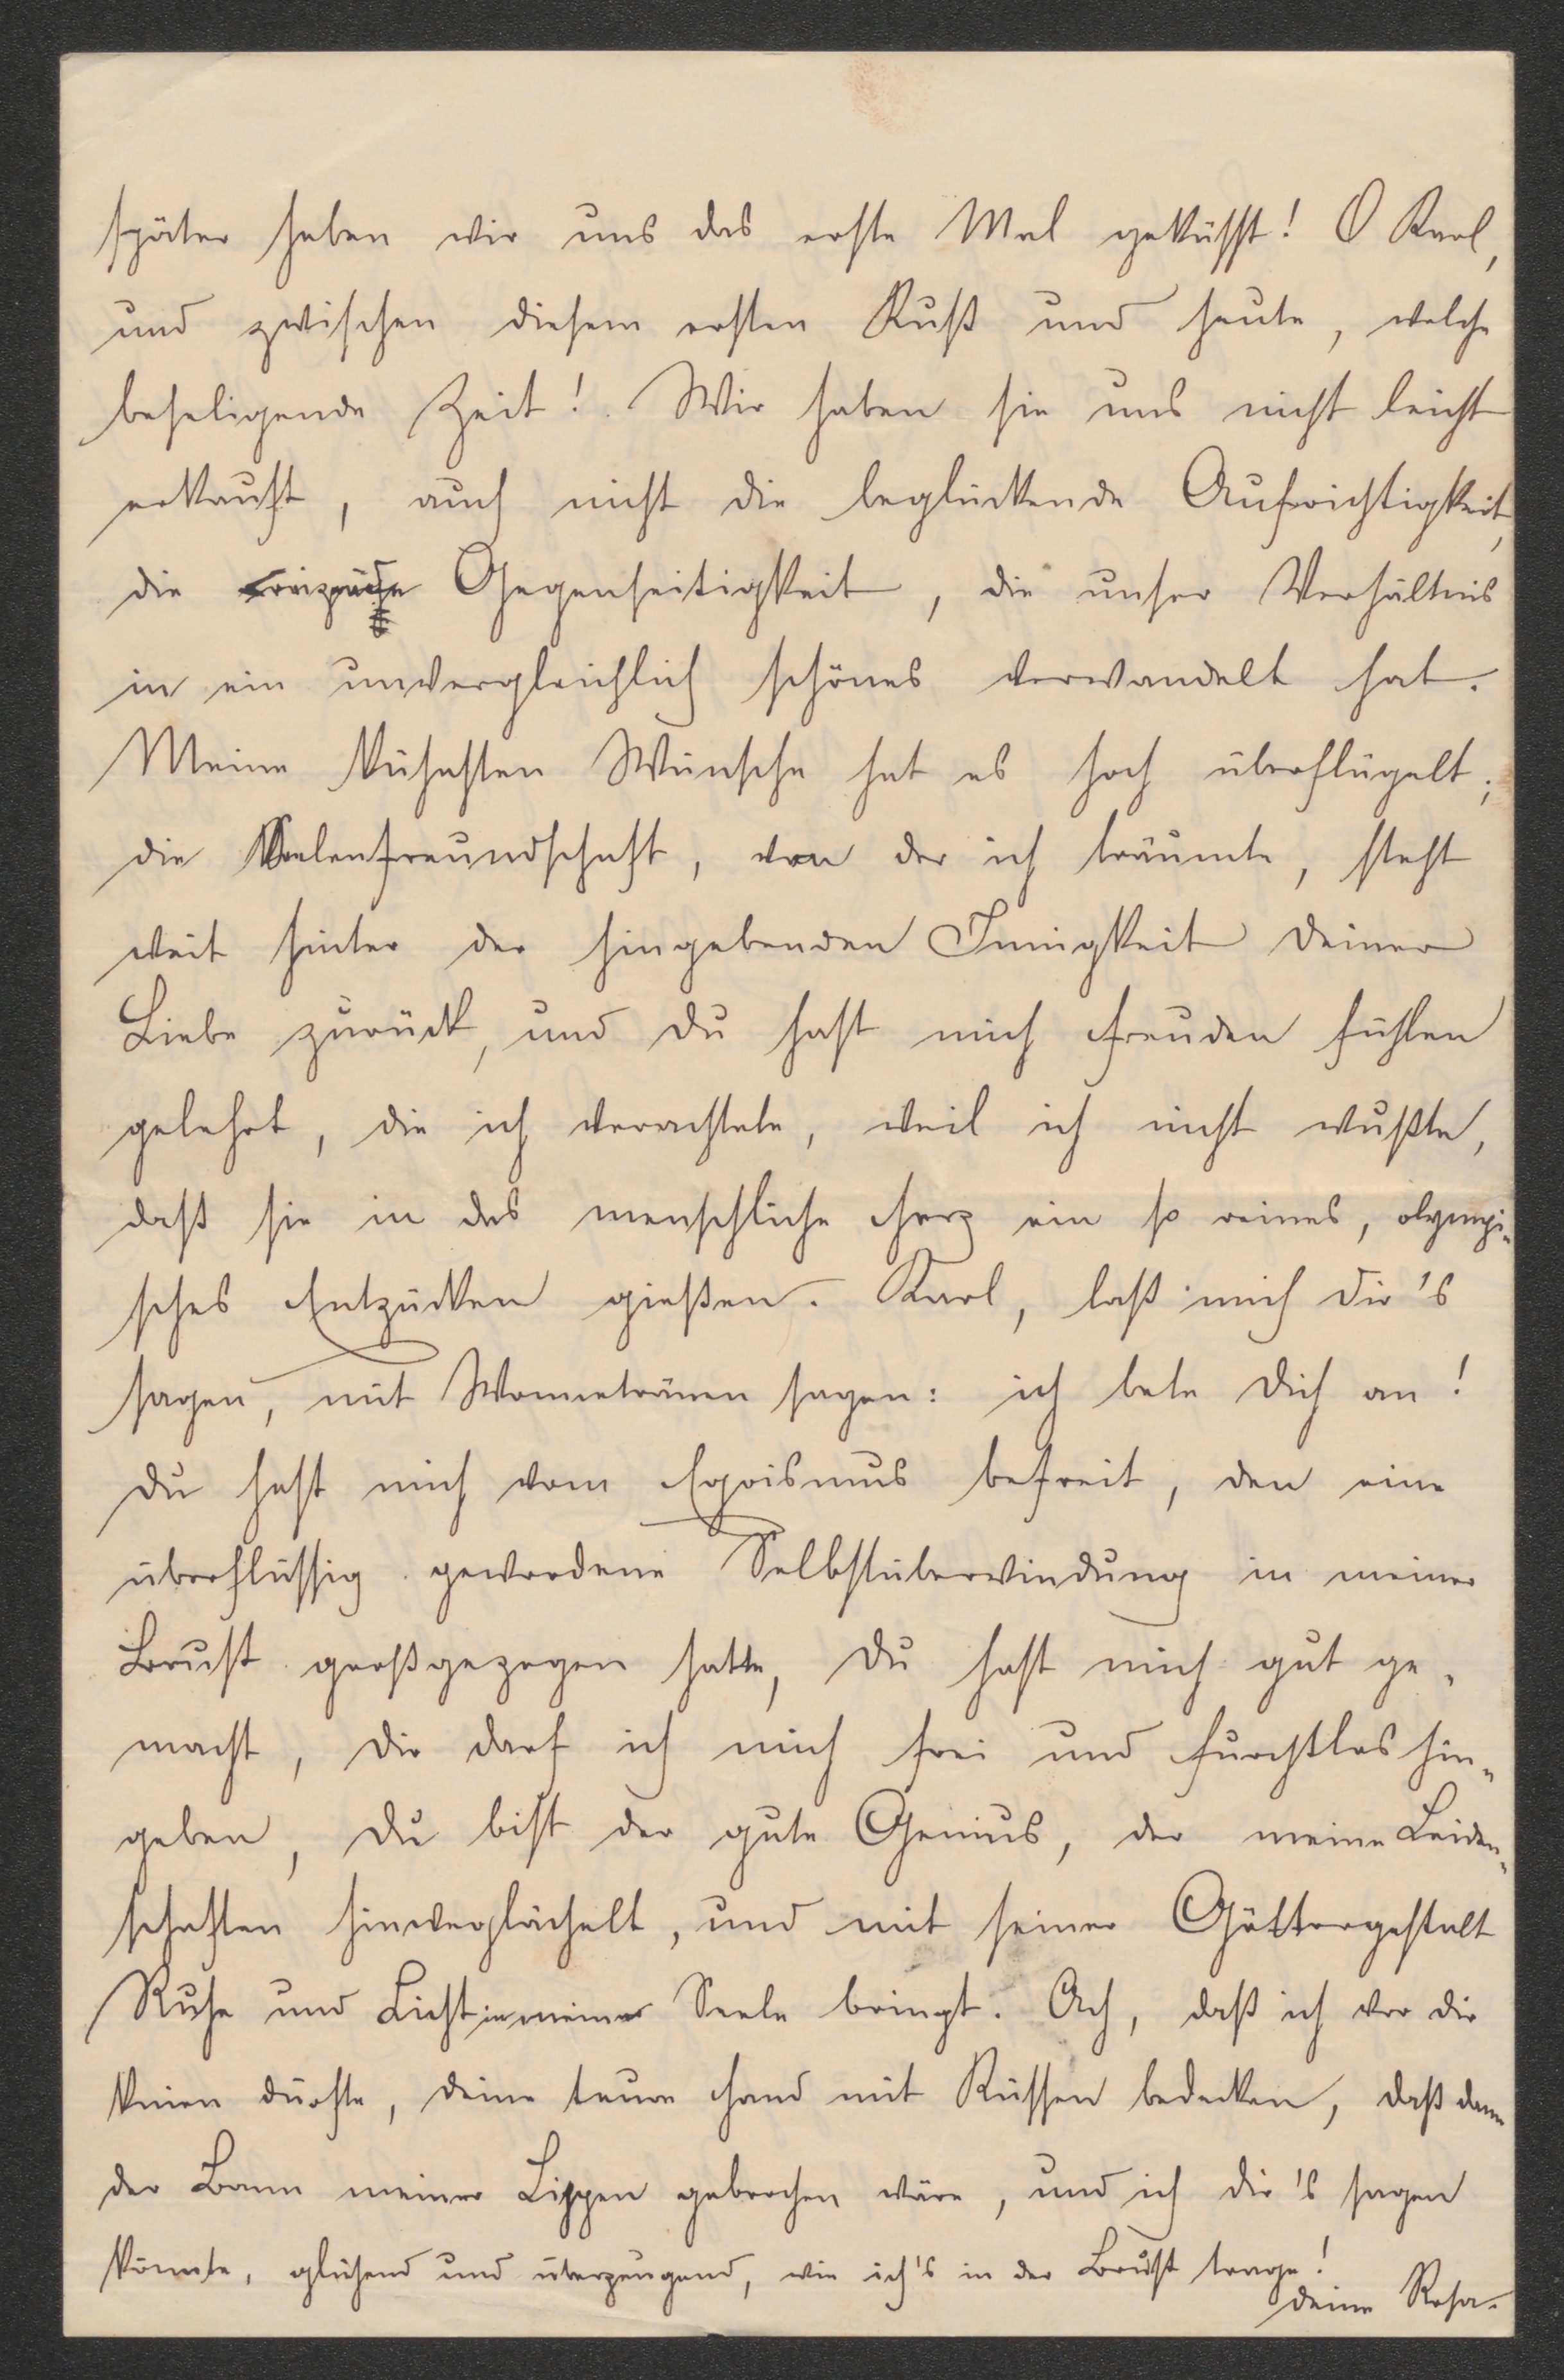 später haben wir uns das erste Mal geküsst! O Karl,
und zwischen diesem ersten Kuß und heute, welche
beseligende Zeit! Wir haben sie uns nicht leicht
erkauft, auch nicht die beglückende Aufrichtigkeit,
die Gegenseitigkeit, die unser Verhältnis
in ein unvergleichlich schönes verwandelt hat.
Meine kühnsten Wünsche hat es hoch überflügelt;
die Seelenfreundschaft, von der ich träumte, steht
weit hinter der hingebenden Innigkeit deiner
Liebe zurück, und du hast mich Freuden fühlen
gelehrt, die ich verachtete, weil ich nicht wußte,
daß sie in das menschliche Herz ein so reines, olympi-
sches Entzücken gießen. Karl, laß mich dir's
sagen, mit Wonnetränen sagen: ich bete dich an!
Du hast mich vom Egoismus befreit, den eine
überflüssig gewordene Selbstüberwindung in meiner
Brust großgezogen hatte, du hast mich gut ge-
macht, dir darf ich mich frei und furchtlos hin-
geben, du bist der gute Genius, der meine Leiden-
schaften hinweglächelt, und mit seiner Göttergestalt
Ruhe und Licht in meiner Seele bringt. Ach, daß ich vor dir
knien dürfte, deine teure Hand mit Küssen bedecken, daß dann
der Bann meiner Lippen gebrochen wäre, und ich dir's sagen
könnte, glühend und überzeugend, wie ich's in der Brust trage!
deine Rosa.